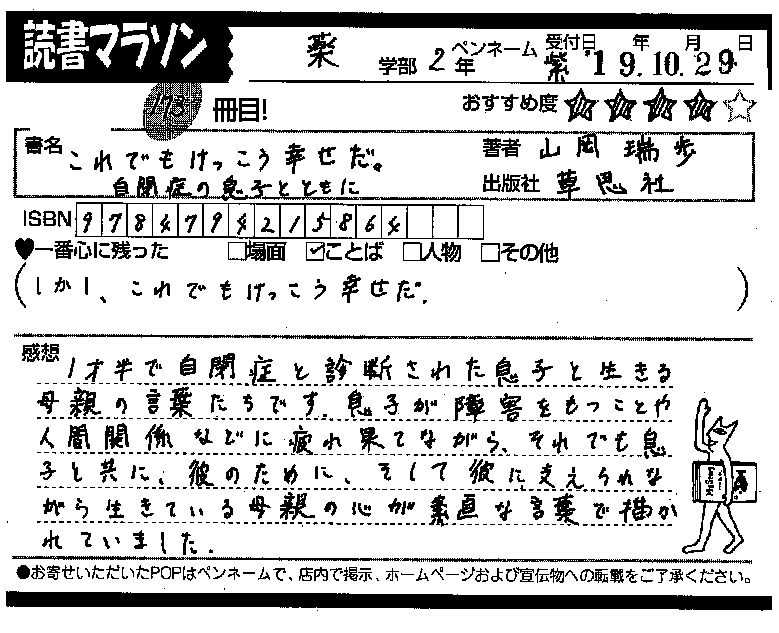 読書マラソン
薬 学部 2年 ペンネーム 紫 受付日 '19年.10月.29日
173冊目!
おすすめ度 ★★★★☆
書名 これでもけっこう幸せだ。
自閉症の息子とともに
著者 山岡 瑞歩
出版社 草思社
ISBN 9784794215864
♥一番心に残った □場面 ☑ことば □人物 □その他
(しかし、これでもけっこう幸せだ.)
感想 1才半で自閉症と診断された息子と生きる
母親の言葉たちです。息子が障害をもつことや
人間関係などに疲れ果てながら、それでも息
子と共に、彼のために、そして彼に支えられな
がら生きている母親の心が素直な言葉で描か
れていました.
●お寄せいただいたPOPはペンネームで、店内で掲示、ホームページおよび宣伝物への転載をご了承ください。